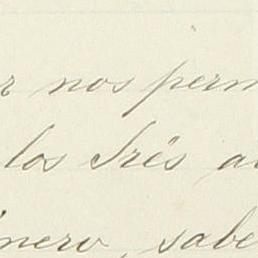 r nos perm
los Três a
nero, sabe